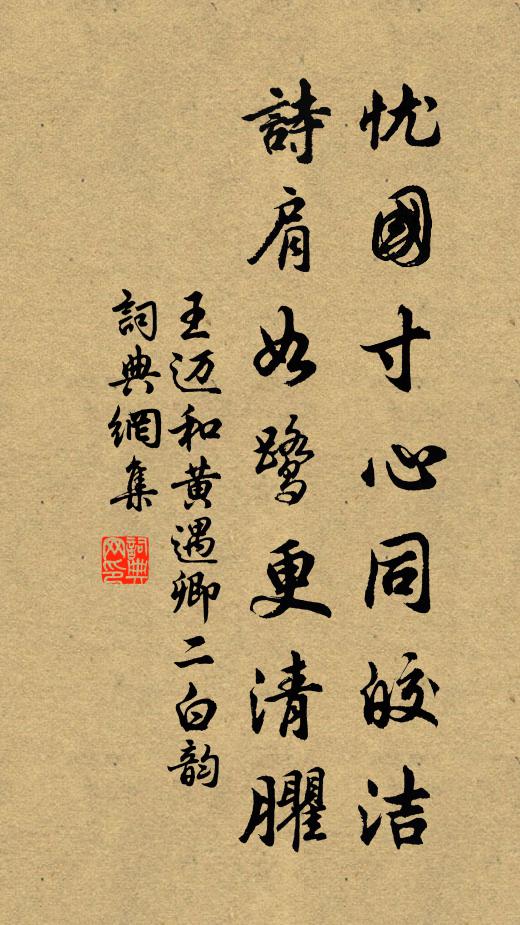 忧國寸心同皎洁
詩肩如鹭更清臞
王迈和黄遇卿二白韵
詞典網集
詞典网印